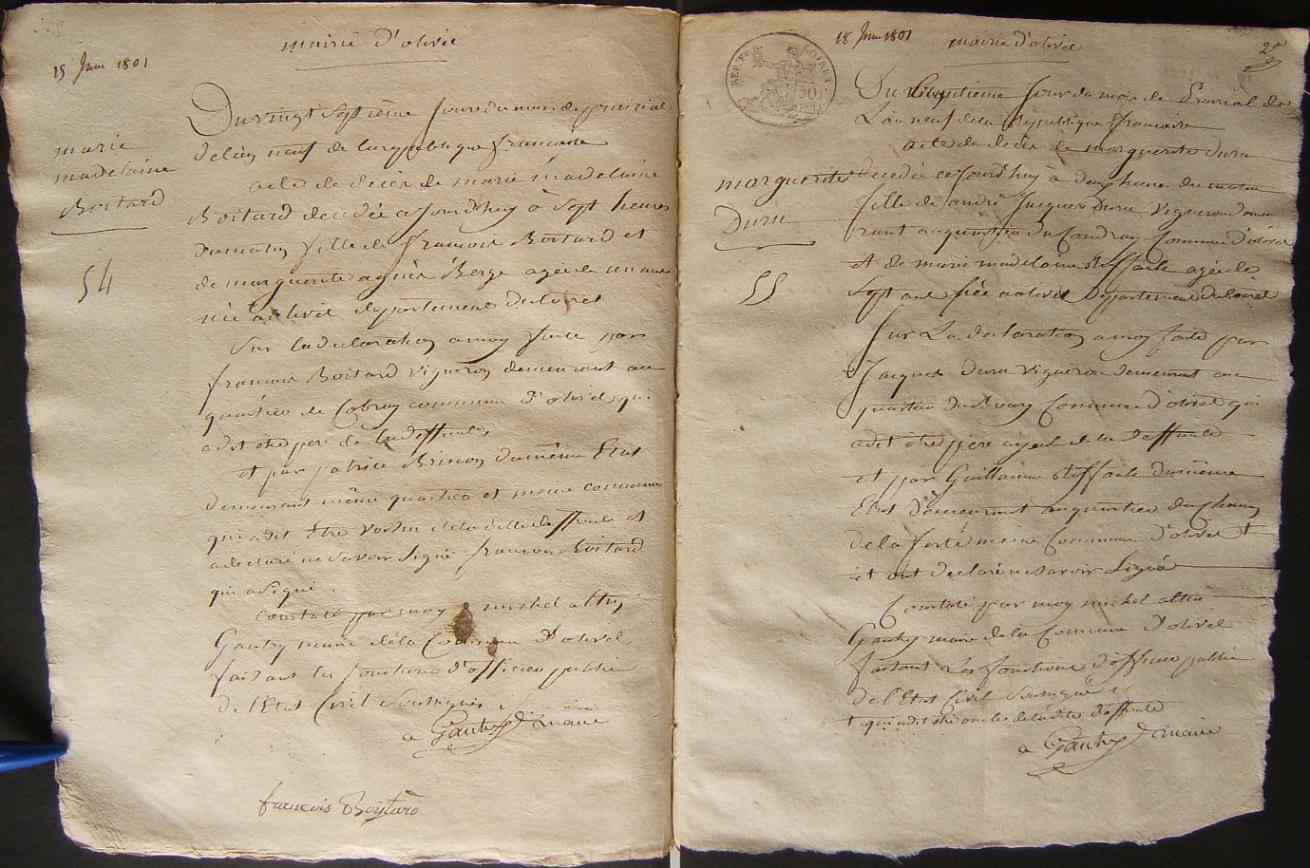 15 Juin 1801
mairie d'olivé
marie
madelaine
Boitard
54
Du vingt Septième Jour du mois de prairial
de l'an neuf de la republique francaise
acte de décès de marie madelaine
Boitard decedée aJourdhuy à Sept heures
du matin fille de francois Boitard et
de marguerite agnès Berge agée de un ans
née a olivet departement du loiret
Sur la declaration a moy faite par
francois Boitard vigneron demeurant au
quartier de commune d'olivet qui
a dit être pere de la deffunte
et par patrice Brinon du même Etat
demeurant même quartier et meme commune
qui a dit être voisin de la ditte deffunte et
a declaré ne Savoir Signé francois Boitard
qui a Signé
Constaté par moy michel altin
Gautry maire de la Commune d'olivet
faisant les fonctions d'officier public
de l'Etat Civil Soussigné
a Gautry maire
francois Boytard
18 Juin 1801
mairie d'olivé
REP. FRA. LOIRET
marguerite
Duru
55
Du Jour du mois de Prairial de
L'an neuf de la Republique francaise
acte de decès de marguerite duru
decedée ceJourdhuy à deux heure du matin
fille de andré Jacques Duru vigneron demeu
rant au quartier du Coudray Commune d'olivet
et de marie madelaine agée de
Sept ans née a olivet Departement du Loiret
Sur La declaration a moy faite par
Jacques duru vigneron demeurant au
quartier du Bourg Commune d'olivet qui
a dit être père ayeul de la deffunte
et par Guillaume du même
Etat demeurant au quartier du
de la ferté meme Commune d'olivet †
et ont declaré ne Savoir Signé
Constaté par moy michel altin
Gautry maire de la Commune d'olivet
faisant Les fonctions d'officier public
de l'Etat Civil Soussigné
† qui a dit être oncle de la ditte deffunte
a Gautry maire